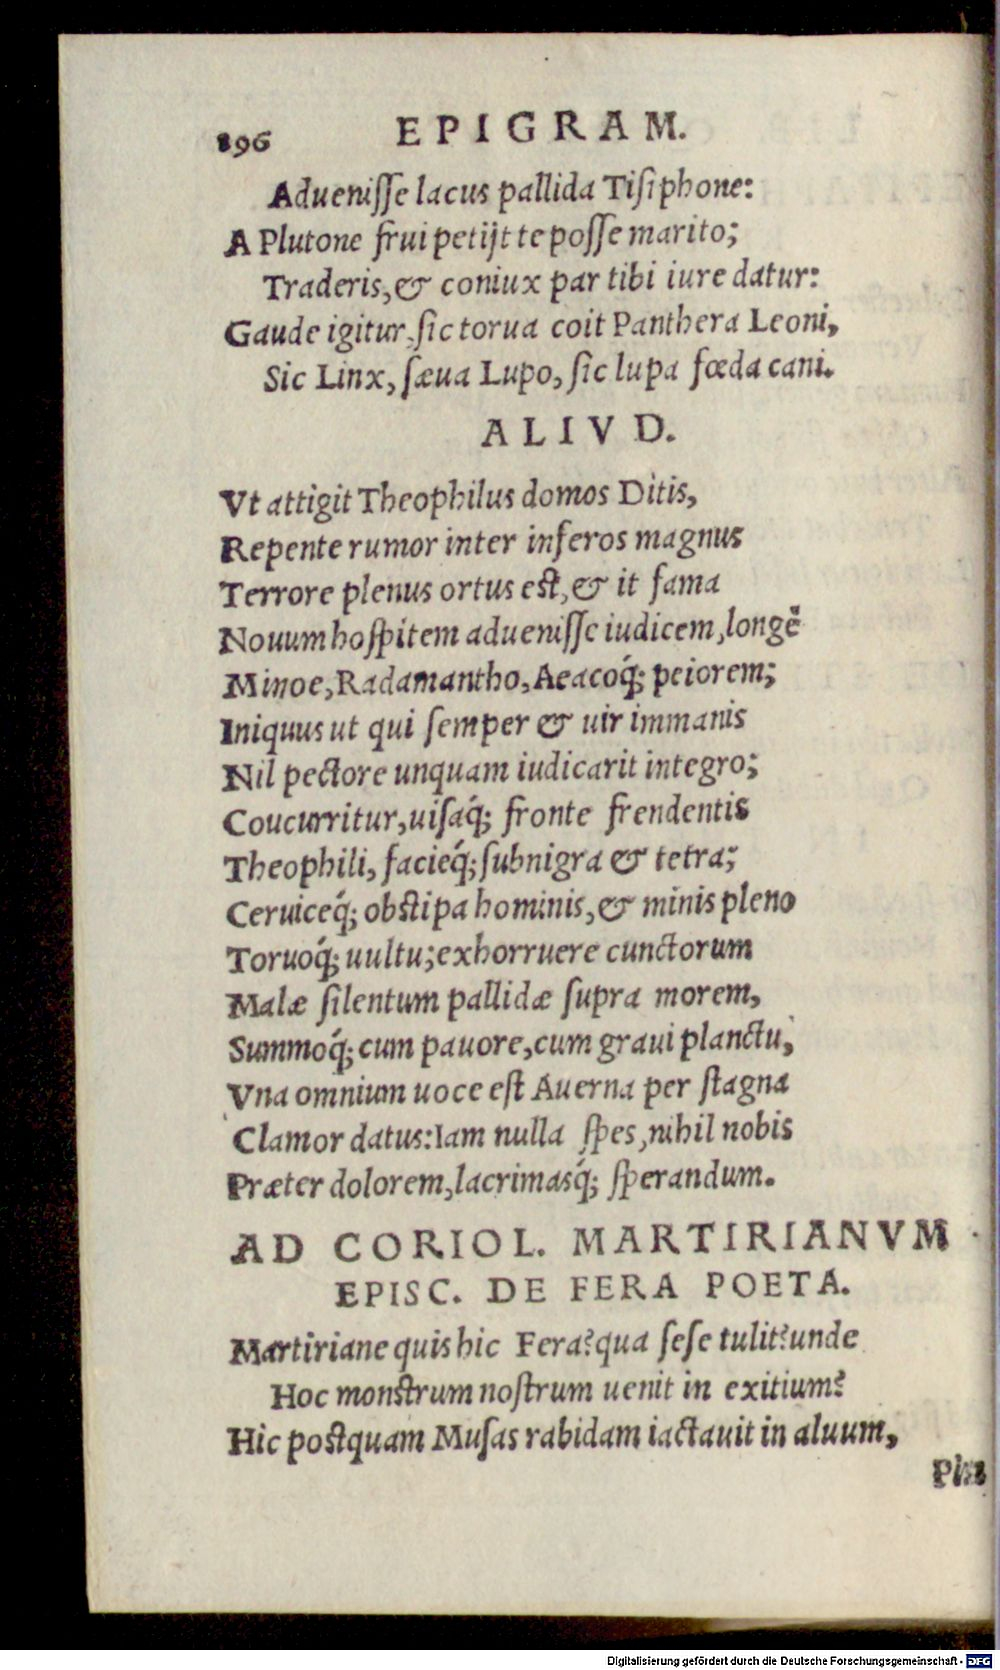 196 EPIGRAM.
Adueniſſe lacus pallida Tiſiphone:
A Plutone frui petijt te poſſe marito;
Traderis, & coniux par tibi iure datur:
Gaude igitur, ſic torua coit Panthera Leoni,
Sic Linx, ſæua Lupo, ſic lupa fœda cani.
ALIVD.
Vt attigit Theophilus domos Ditis,
Repente rumor inter inferos magnus
Terrore plenus ortus eſt, & it fama
Nouum hoſpitem adueniſſe iudicem, longè
Minoe, Radamantho, Aeacoq́; peiorem;
Iniquus ut qui ſemper & uir immanis
Nil pectore unquam iudicarit integro;
Coucurritur, uiſaq́; fronte frendentis
Theophili, facieq́; ſubnigra & tetra;
Ceruiceq́; obſtipa hominis, & minis pleno
Toruoq́; uultu; exhorruere cunctorum
Malæ ſilentum pallidæ ſupra morem,
Summoq́; cum pauore, cum graui planctu,
Vna omnium uoce eſt Auerna per ſtagna
Clamor datus: Iam nulla ſpes, nihil nobis
Præter dolorem, lacrimasq́; ſperandum.
AD CORIOL. MARTIRIANVM
EPISC. DE FERA POETA.
Martiriane quis hic Fera? qua ſeſe tulit? unde
Hoc monſtrum noſtrum uenit in exitium?
Hic poſtquam Muſas rabidam iactauit in aluum,
Digitalisierung gefördert durch die Deutsche Forschungsgemeinschaft - DFG